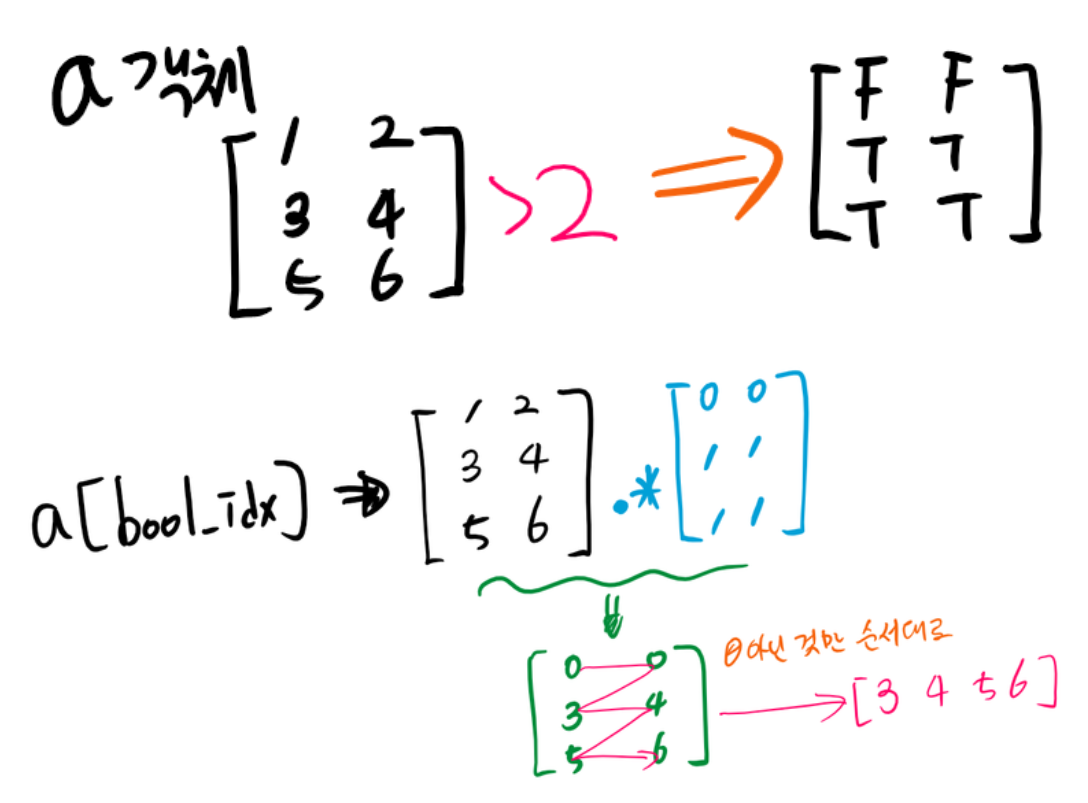 a 객체
[1 2
3 4
5 6] >2 ⇒ [F F
T T
T T]
a[bool_idx] ⇒ [1 2
3 4
5 6] .* [0 0
1 1
1 1]
[0 0
3 4
5 6]
0아닌 것만 순서대로
[3 4 5 6]